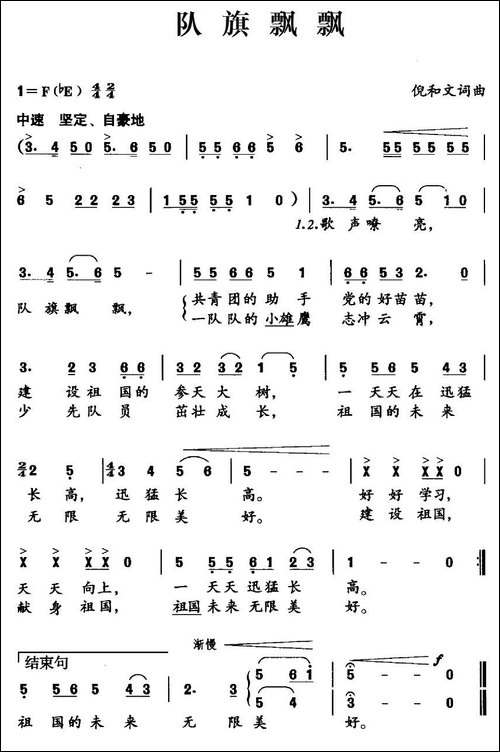 队旗飘飘
1=F(♭E) 4/4 2/4 倪和文词曲
中速 坚定、自豪地
(3· 4 5 0 5· 6 5 0 | 5 5 6 6 5 6 | 5· 5 5 5 5 5 5 |
6 5 2 2 2 3 | 1 5 5 5 5 1 0 ) | 3· 4 5· 6 5 1 0 |
1.2.歌声嘹亮,
3· 4 5· 6 5 - | 5 5 6 6 5 1 | 6 6 5 3 2· 0 |
队旗飘飘, 共青团的助手 党的好苗苗,
一队队的小雄鹰 志冲云霄,
3· 2 3 6 6 | 3 2 3 2 1 5 | 5 5 6 5 4 3 |
建设祖国的 参天大树, 一天天在迅猛
少先队员 茁壮成长, 祖国的未来
2/4 2 5 | 4/4 3 4 5 6 | 5 - - 0 | X X X X 0 |
长高, 迅猛长高。 好好学习,
无限 无限美好。 建设祖国,
X X X X 0 | 5 5 5 6 1 2 3 | 1 - - 0 :‖
天天向上, 一天天迅猛长高。
献身祖国, 祖国未来无限美好。
渐慢
结束句 f
5 5 6 5 4 3 | 2· 3 5 6 1 | 5 - - 0 ‖
5 4 | 3 - - 0
祖国的未来 无限美好。